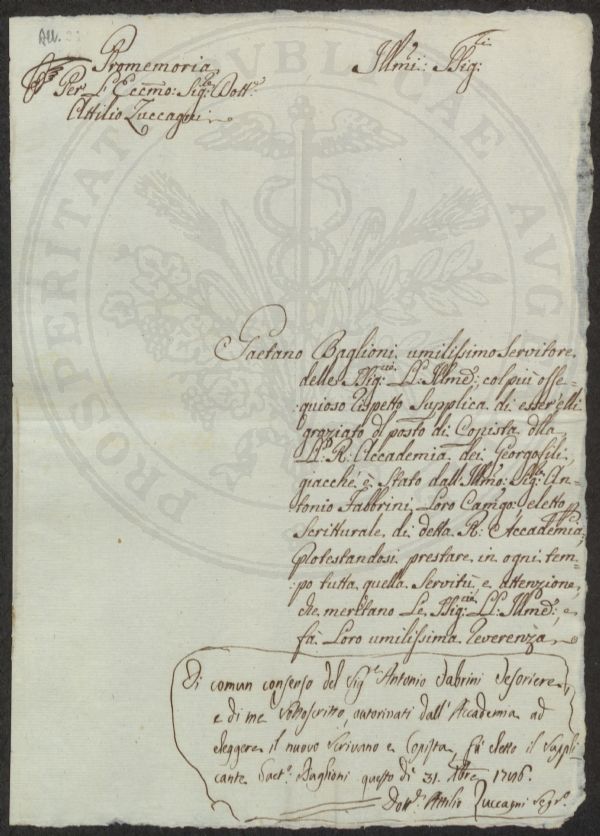 All.
Promemoria
Per l'Eccmo: Sig:re Dott:e
Attilio Zuccagni
Illmi: Sig:ri
PROSPERITATI PUBLICAE AUGENDAE
Gaetano Baglioni umilissimo Servitore
delle Sig:rie LL: Illme:, col più osse=
:quioso rispetto Supplica di esser'
graziato di posto di Copista della
R: Accademia dei Georgofili,
giacchè è Stato dall'Illmo: Sig:re An=
tonio Fabbrini, Loro eletto p
Scritturale di detta R: Accademia,
Protestandosi prestare in ogni tem=
:po tutta quella Servitù, e attenzione,
che meritano Le Sig:rie LL: Illme:, e
fa Loro umilissima Reverenza
Di comun consenso del Sig:e Antonio Fabrini Tesoriere,
e di me Sottoscritto, autorizati dall'Accademia ad
eleggere il nuovo Scrivano e Copista, fù eletto il Suppli
cante Gaet:o Baglioni questo dì 31. 1796.
Dott:e Attilio Zuccagni Seg:o